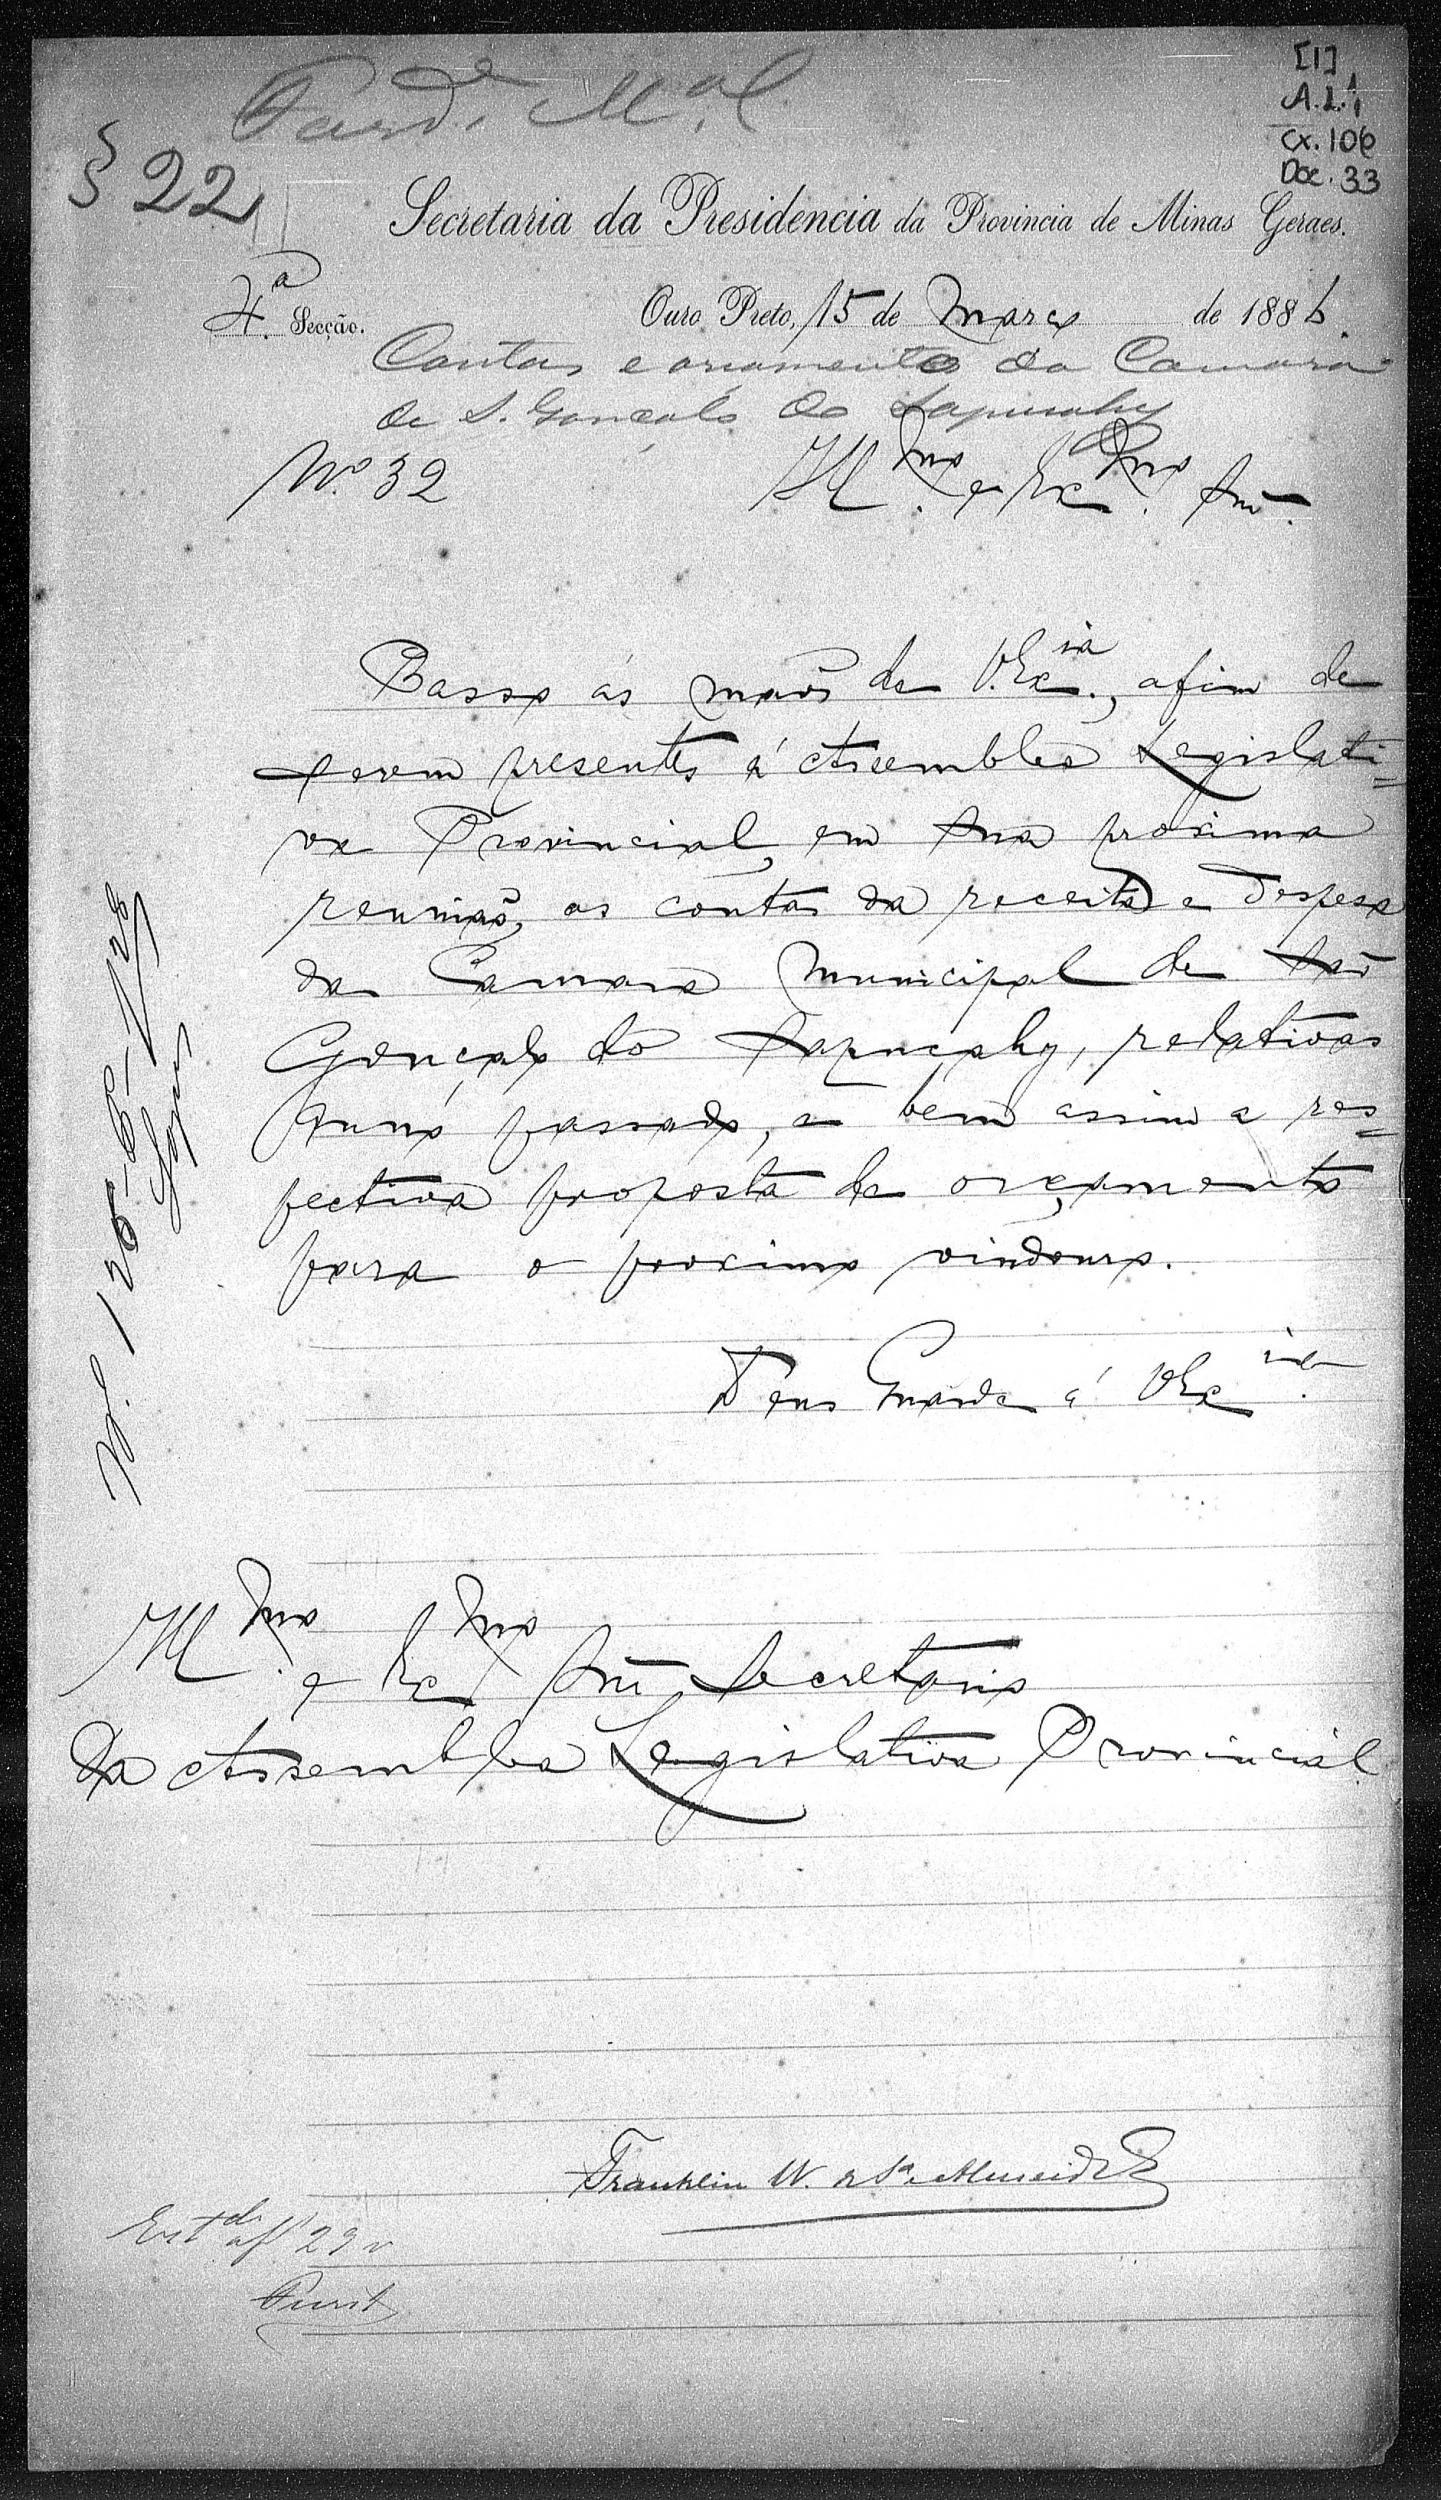 [1]
A.L.1
cx. 106
Doc. 33
§ 22
Secretaria da Presidencia da Provincia de Minas Geraes.
4.ª Secção.
Ouro Preto, 15 de Março de 1886.
Contas e orçamento da Camara
de S. Gonçalo do Sapucahy
N.º 32
Ill.mo e Ex.mo Snr.
Passo ás mãos de V. Ex.cia, afim de
serem presentes á Assembléa Legislati=
va Provincial, em sua proxima
reunião, as contas da receita e despesa
da Camara Municipal de São
Gonçalo do Sapucahy, relativas
anno passado, e bem assim a res=
pectiva proposta de orçamento
para o proximo vindouro.
Deus Guarde á V Ex.cia
Ill.mo e Ex.mo Snr. Secretario
da Assembléa Legislativa Provincial
Franklin W. de Sá e Almeida